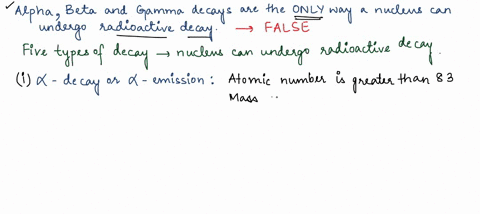 ✓ Alpha, Beta and Gamma decays are the ONLY way a nucleus can
undergo radioactive decay. → FALSE
Five types of decay → nucleus can undergo radioactive decay.
(i) α - decay or α - emission : Atomic number is greater than 83
Mass